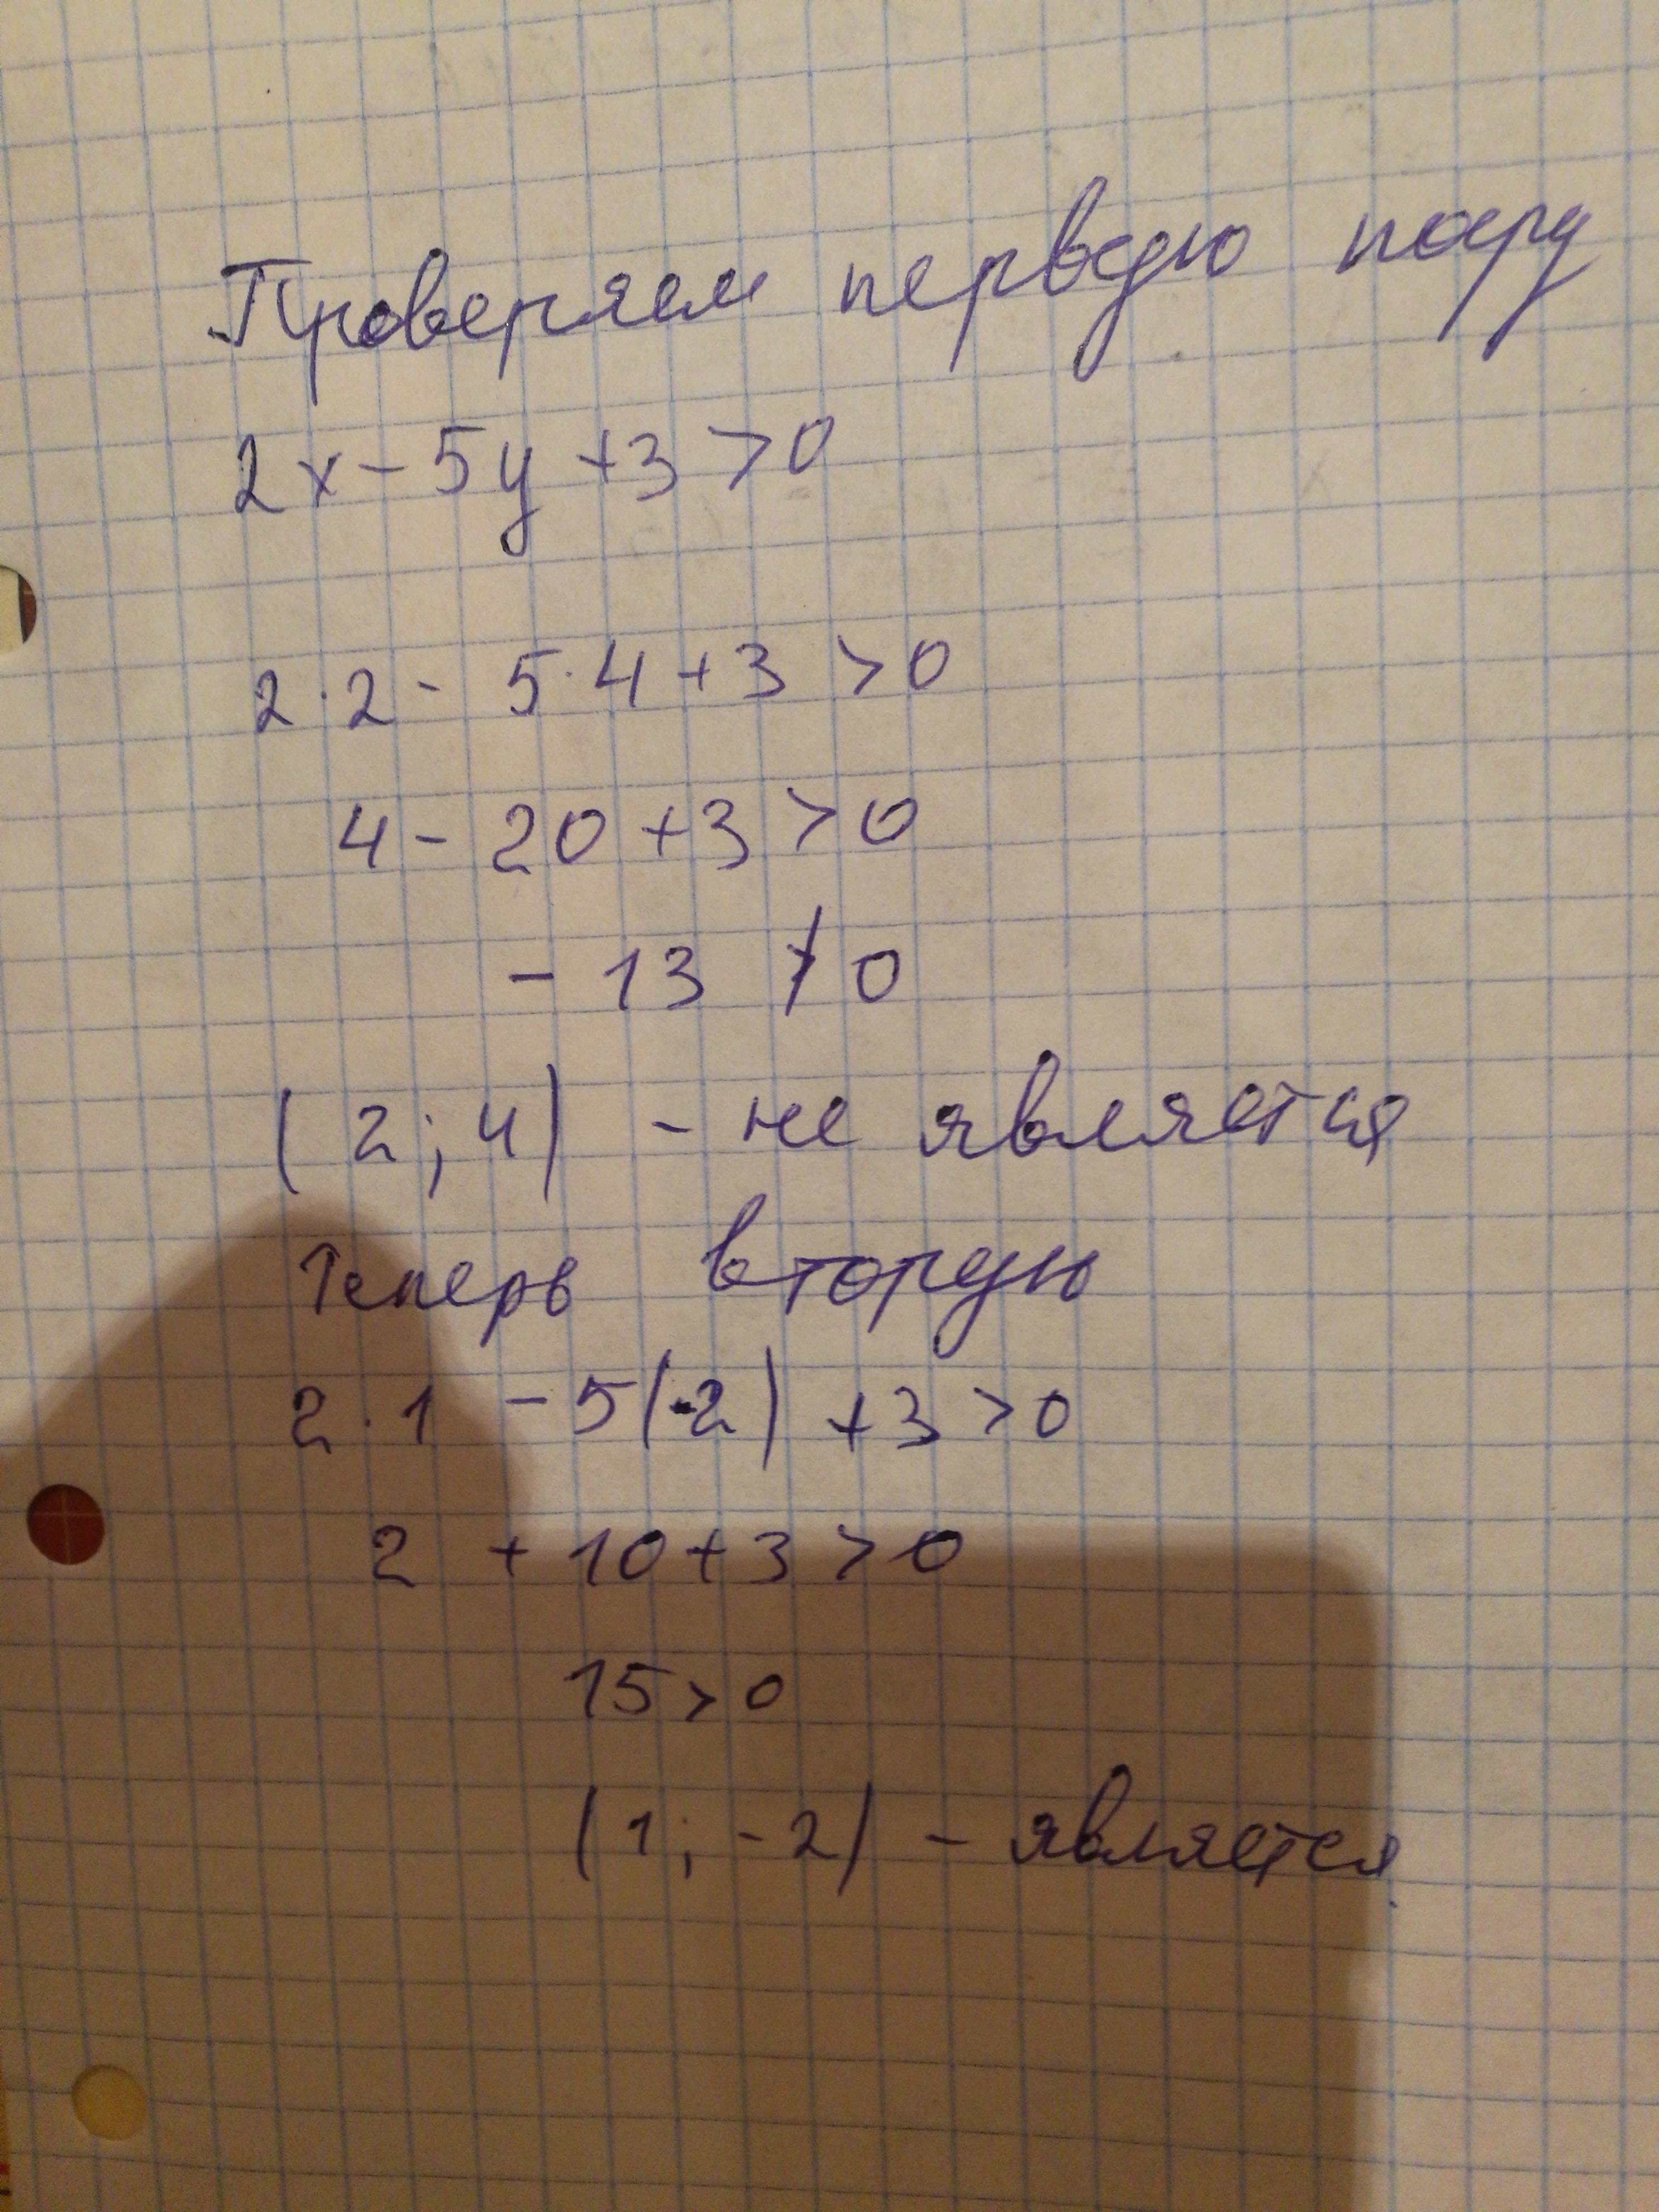 Проверяем первую пару
2x - 5y + 3 > 0
2 · 2 - 5 · 4 + 3 > 0
4 - 20 + 3 > 0
- 13 ≯ 0
(2; 4) - не является
Теперь вторую
2 · 1 - 5(-2) + 3 > 0
2 + 10 + 3 > 0
15 > 0
(1; -2) - является